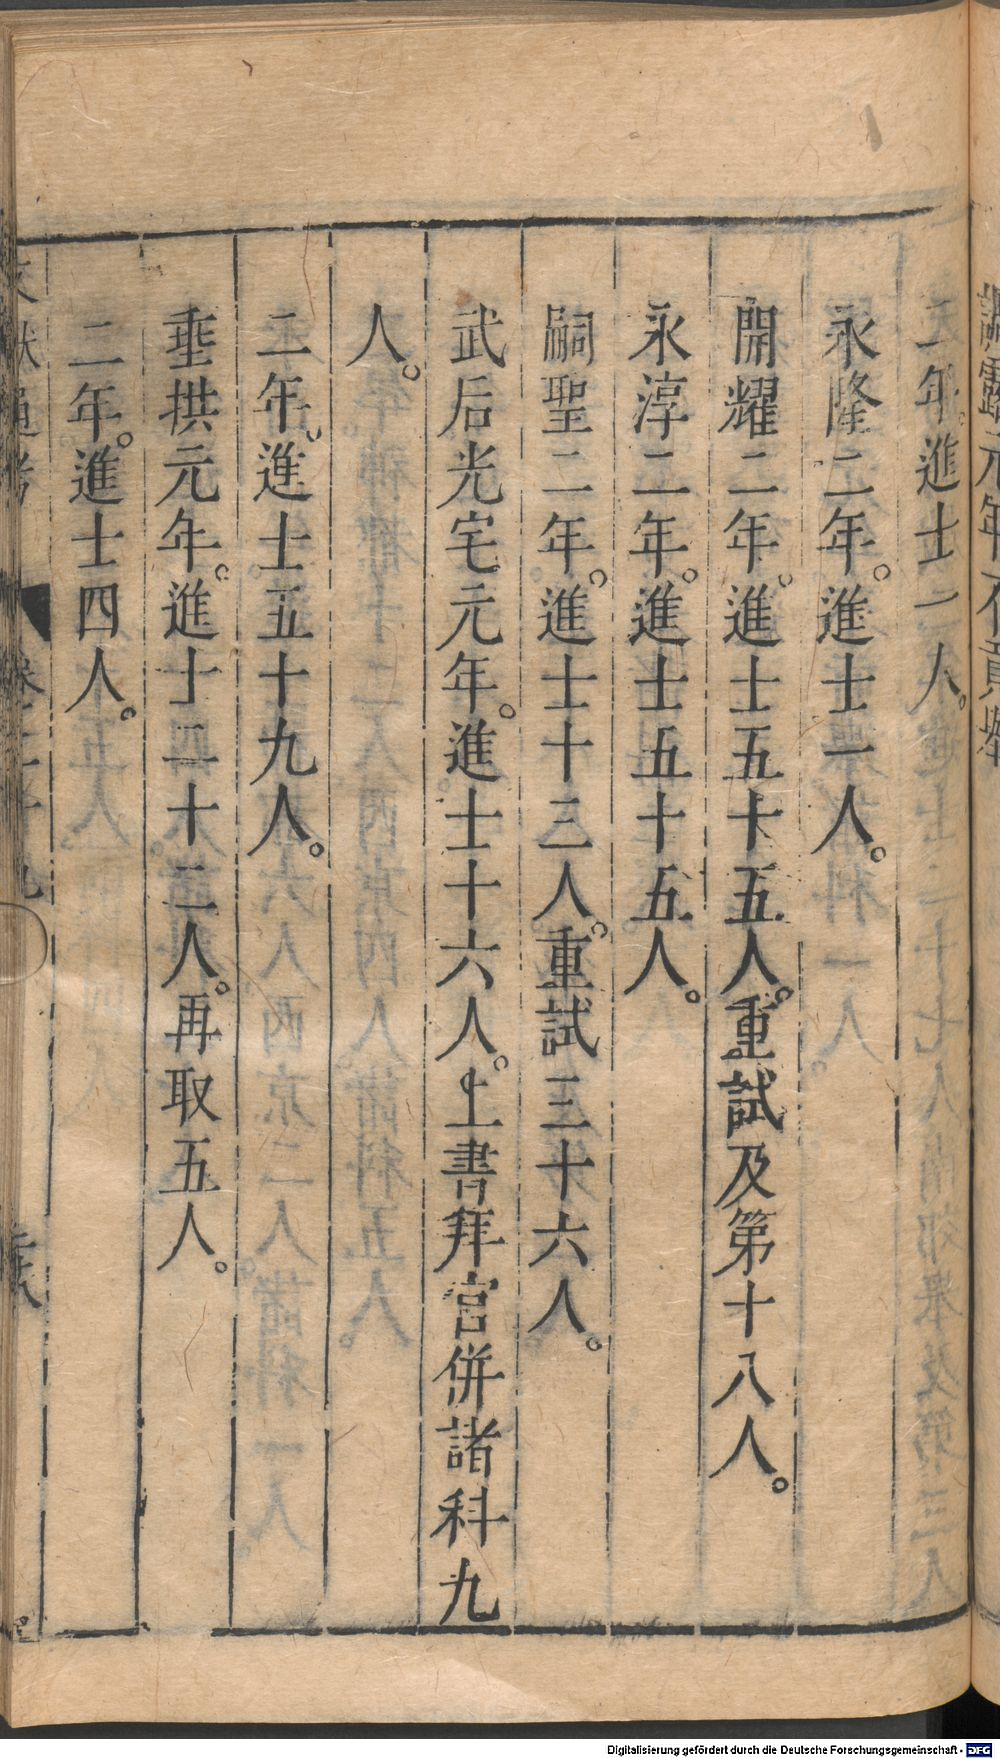 調露元年不貢舉
二年。進士一人。
永隆二年。進士一人。
開耀二年。進士五十五人。重試及第十八人。
永淳二年。進士五十五人。
嗣聖二年。進士十三人。重試三十六人。
武后光宅元年。進士十六人。上書拜官併諸科九
人。
二年。進士五十九人。
垂拱元年。進士二十二人。再取五人。
二年。進士四人。
文獻通考 卷二十九
Digitalisierung gefördert durch die Deutsche Forschungsgemeinschaft - DFG